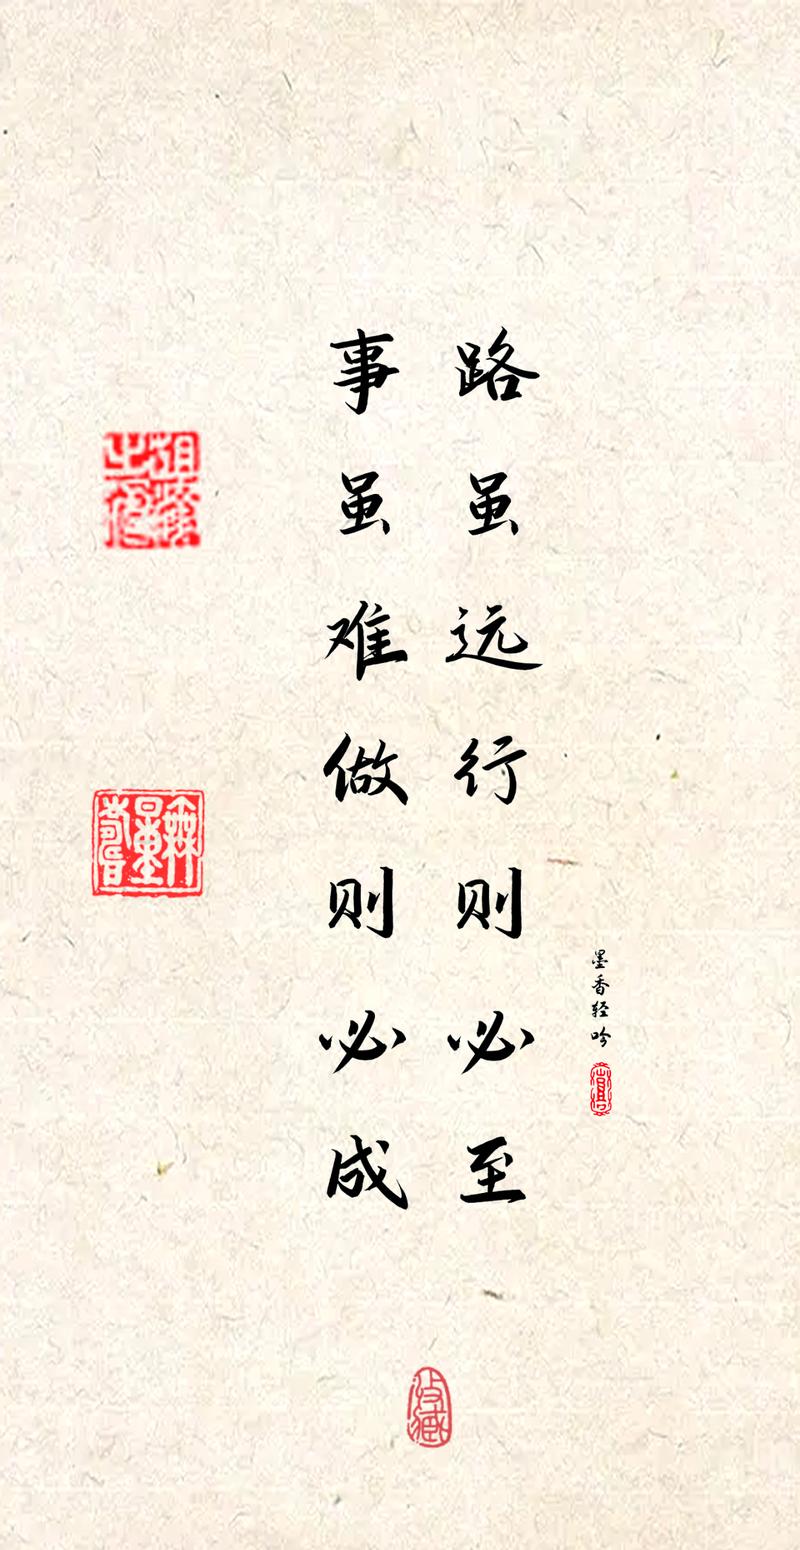 路虽远行则必至
事虽难做则必成
墨香轻吟
收藏